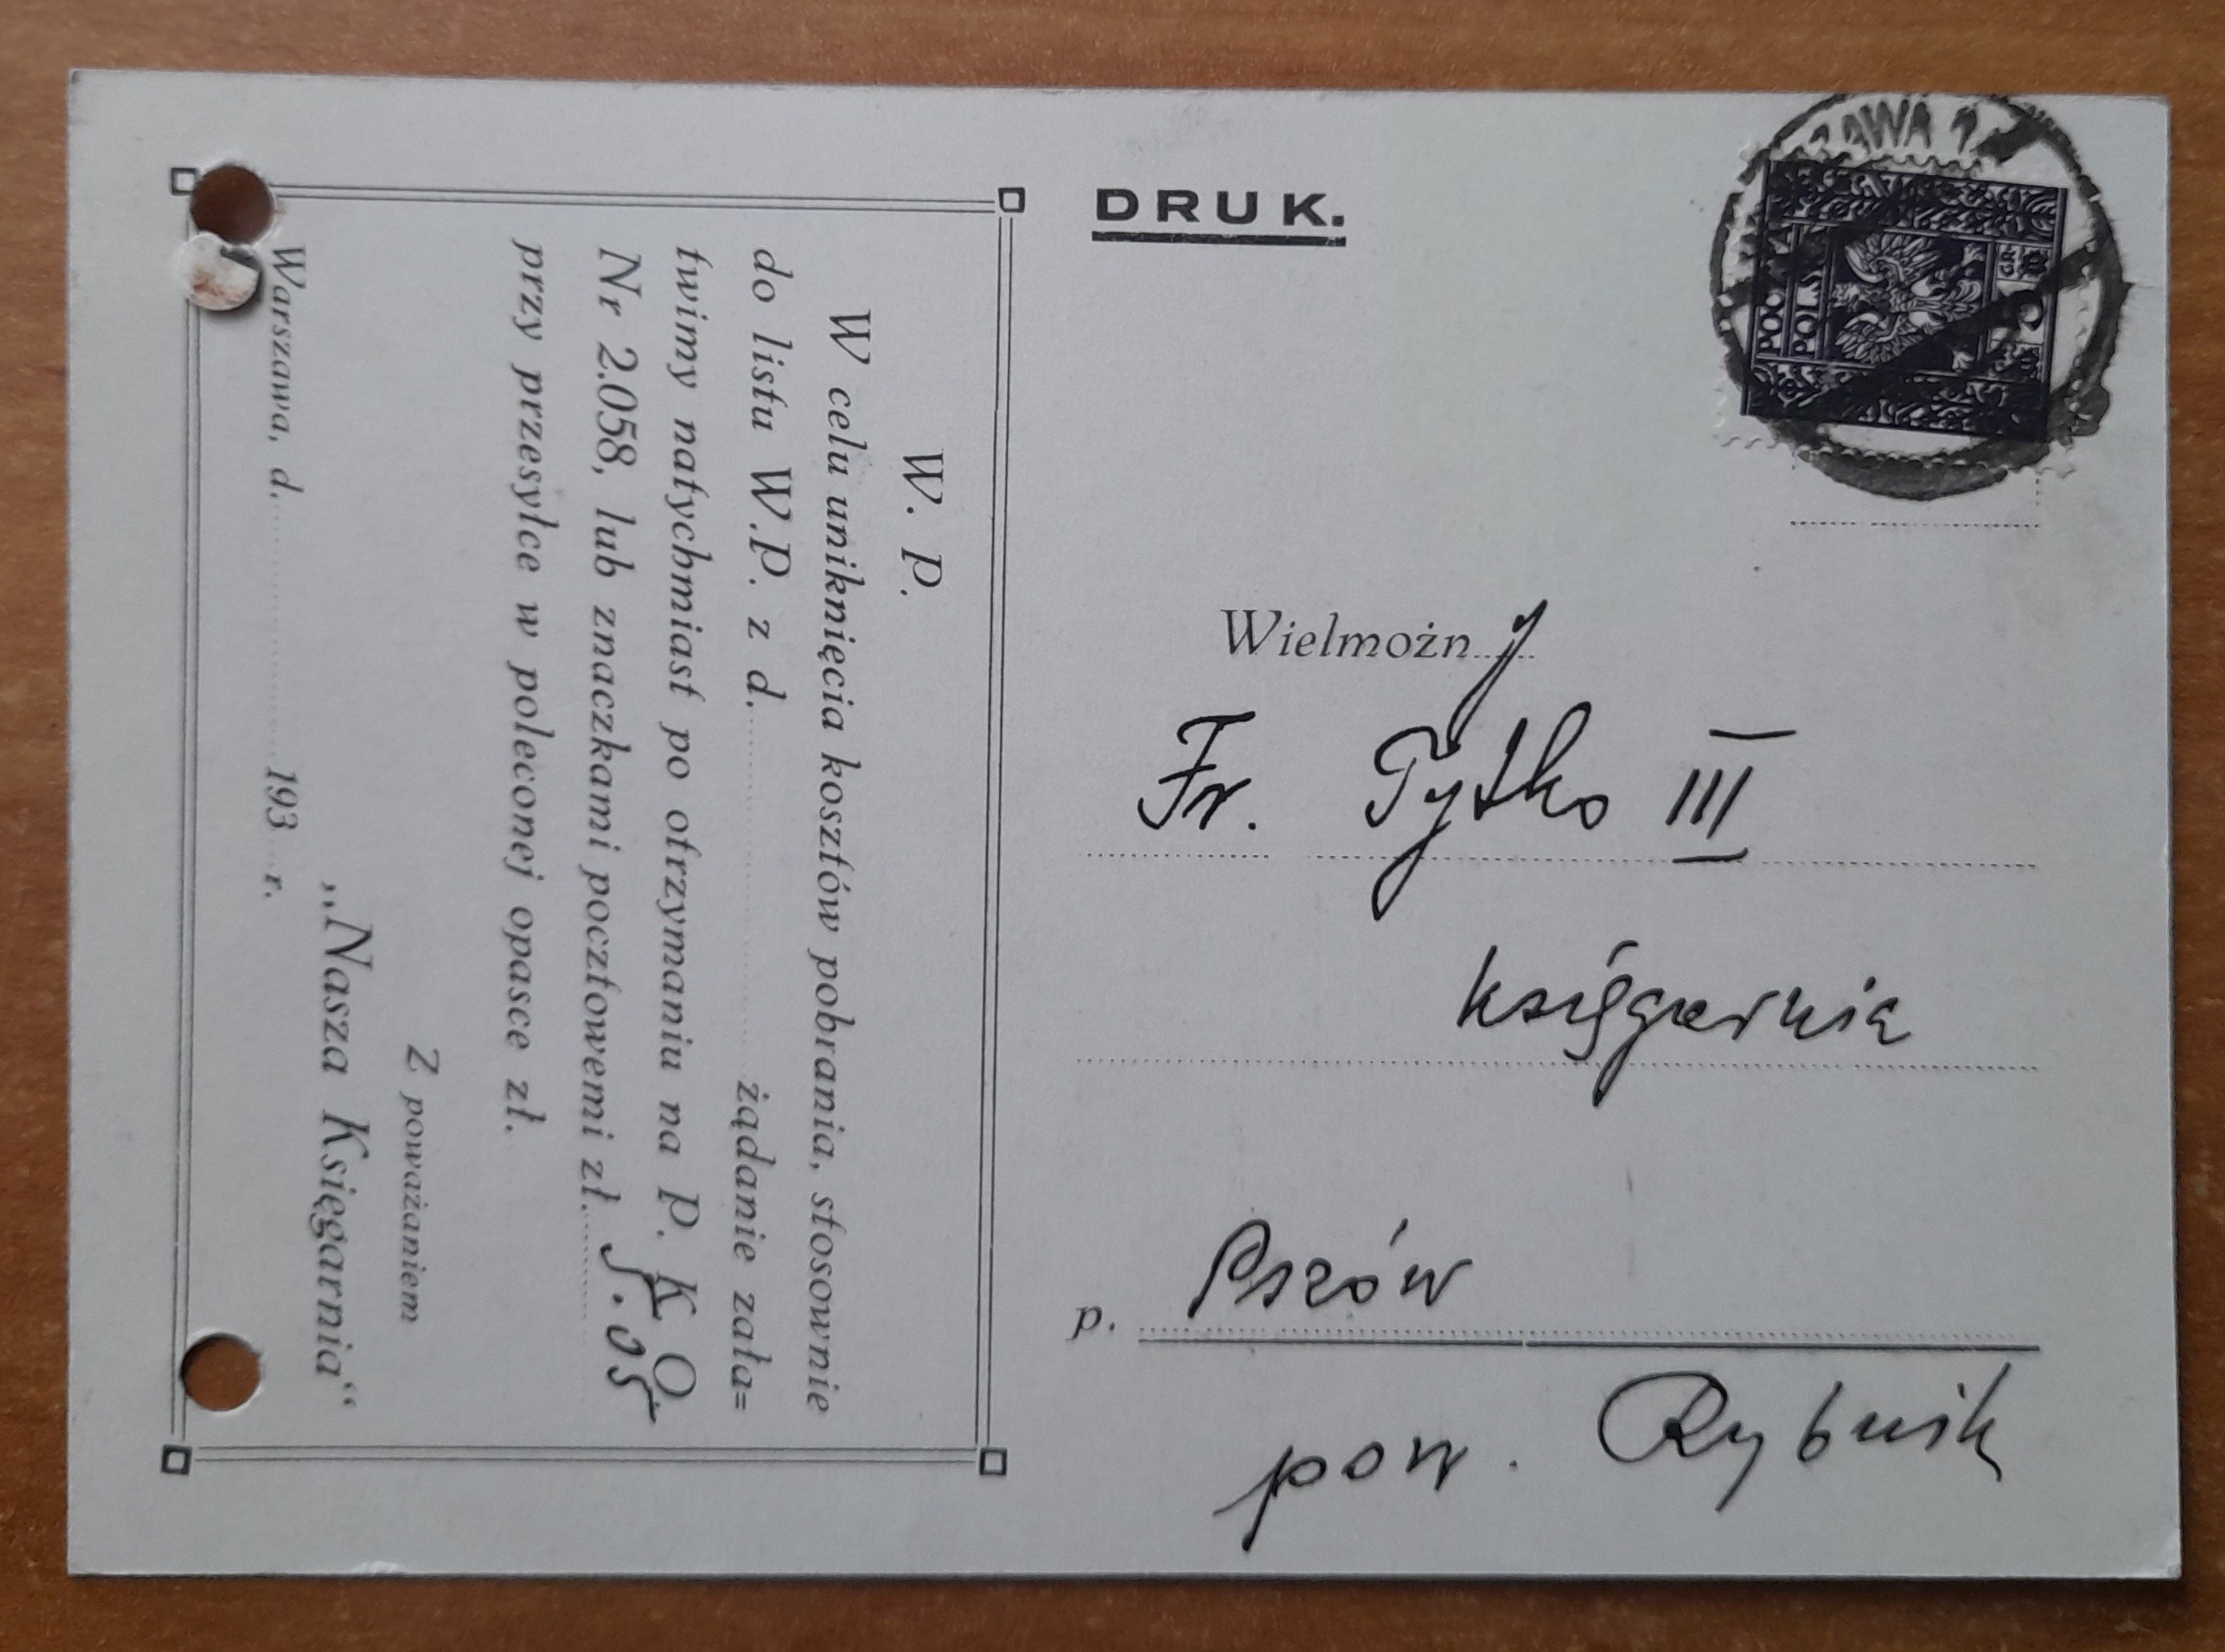 W. P.
W celu uniknięcia kosztów pobrania, stosownie
do listu W.P. z d. żądanie zała=
twimy natychmiast po otrzymaniu na P. K. O.
Nr 2.058, lub znaczkami pocztowemi zł. 5.05
przy przesyłce w poleconej opasce zł.
Z poważaniem
„Nasza Księgarnia“
Warszawa, d. 193 r.
DRUK.
POLS
GR
5
Wielmożny
Fr. Tytko III
księgarnia
p. Pszów
pow. Rybnik